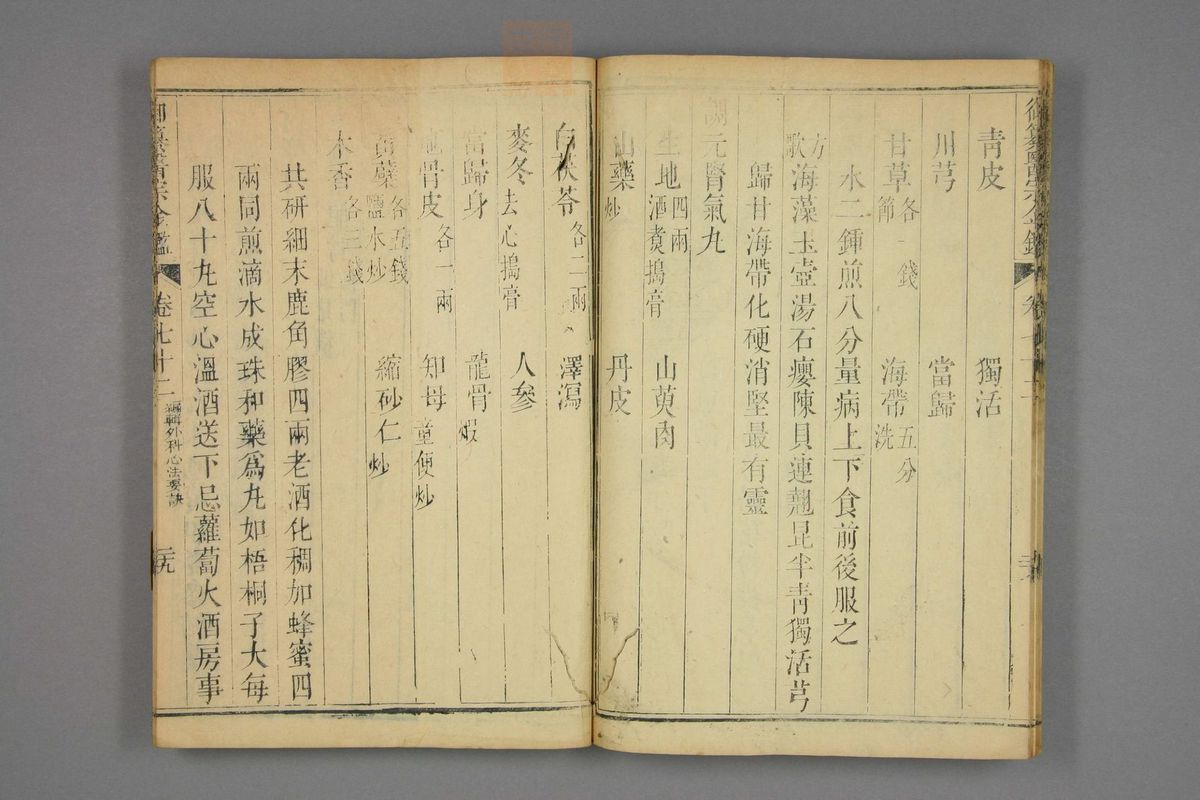 青皮 獨活
川芎 當歸
甘草節各一錢 海帶洗五分
水二鍾煎八分量病上下食前後服之
方歌海藻玉壺湯石癭陳貝連翹昆半青獨活芎
歸甘海帶化硬消堅最有靈
調元腎氣丸
生地四兩酒煑搗膏 山萸肉
山藥炒 丹皮
白茯苓各二兩 澤瀉
麥冬去心搗膏 人參
當歸身 龍骨煆
地骨皮各一兩 知母童便炒
黃蘗鹽水炒各五錢 縮砂仁炒
木香各三錢
共研細末鹿角膠四兩老酒化稠加蜂蜜四
兩同煎滴水成珠和藥爲丸如梧桐子大每
服八十丸空心溫酒送下忌蘿蔔火酒房事
御纂醫宗金鑑 卷七十二 編輯外科心法要訣